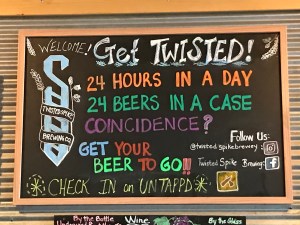 WELCOME! Get TWISTED!
TWISTED SPIKE
BREWING CO.
24 HOURS IN A DAY
24 BEERS IN A CASE
COINCIDENCE?
Follow Us:
@twisted.spikebrewery
GET YOUR
BEER TO GO!!
Twisted Spike Brewing
CHECK IN on UNTAPPD
By the Bottle
Wine
By the Glass